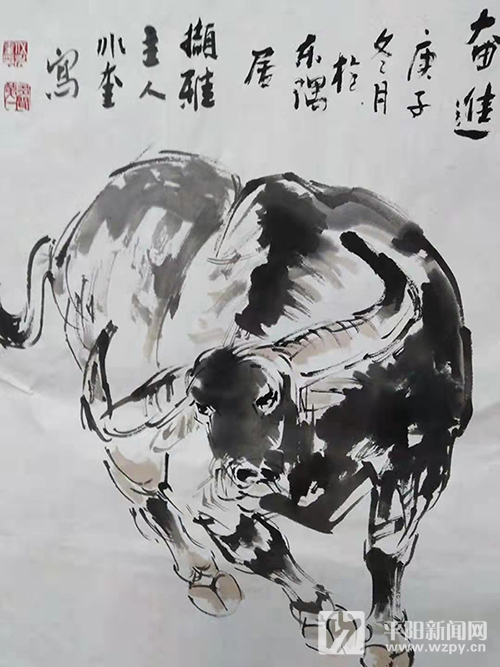 奋進
庚子
冬月
於
东隅
居
擷雅
主人
水奎
寫
平阳新闻网
www.wzpy.cn